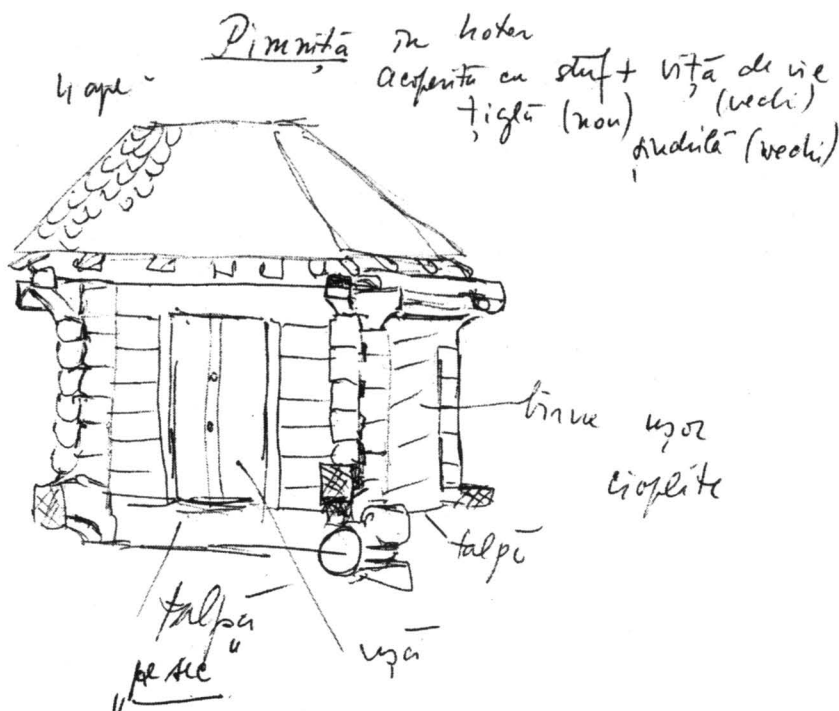 Pimniță în hotar
4 ape
acoperită cu stuf + viță de vie
țiglă (nou) (vechi)
șindrilă (vechi)
bîrne ușor
cioplite
talpă
talpă
ușă
"pe sec"